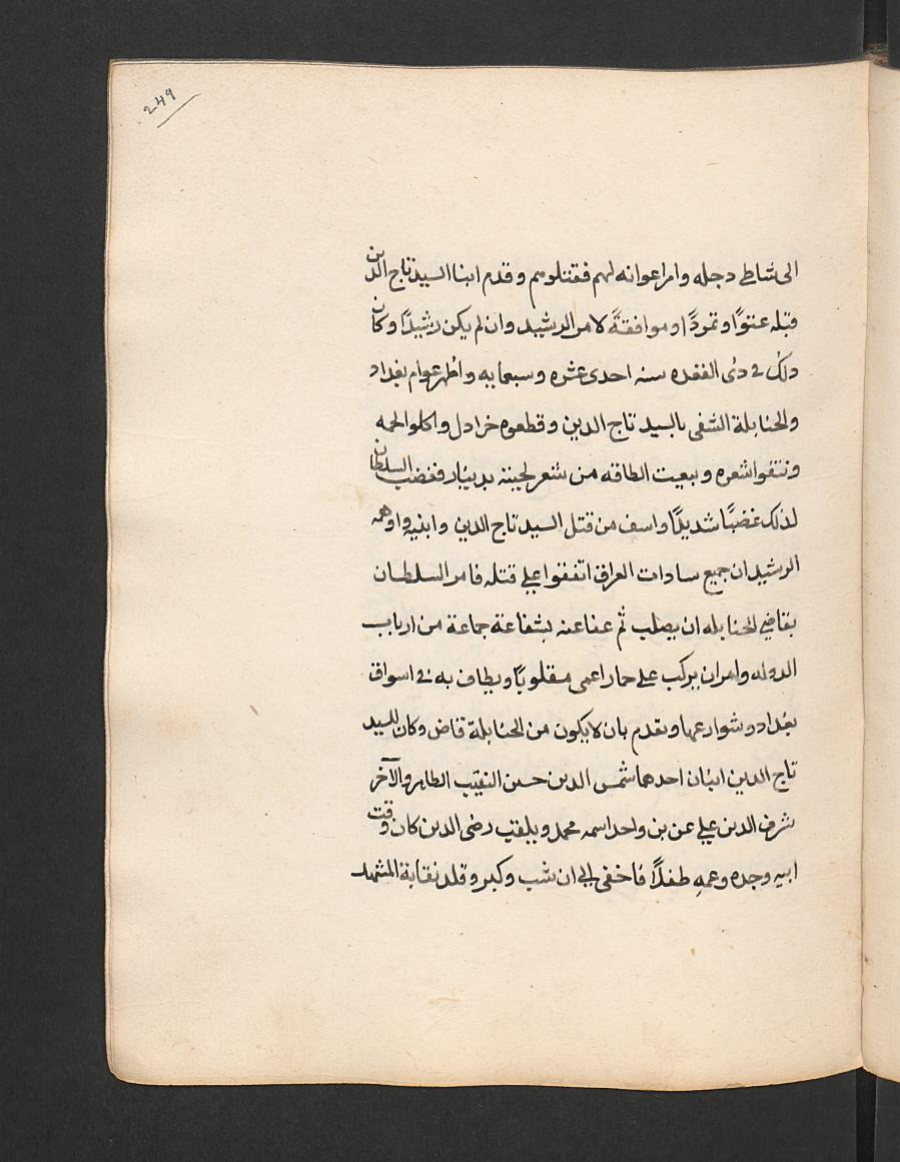 249
الى شاطى دجله وامر اعوانه لهم فقتلوهم وقدم ابنا السيد تاج الدين
قبله عتوًا وتمردًا وموافقةً لامر الرشيد وان لم يكن رشيدًا وكان
ذلك فى ذى القعده سنه احدى عشره وسبعمايه واظهر عوام بغداد
والحنابلة التشفى بالسيد تاج الدين وقطعوه خرادل واكلوا لحمه
ونتفوا شعره وبيعت الطاقه من شعر لحيته بدينار فغضب السلطان
لذلك غضبًا شديدًا واسف من قتل السيد تاج الدين وابنيه واوهمه
الرشيد ان جميع سادات العراق اتفقوا على قتله فامر السلطان
بقاضى الحنابله ان يصلب ثم عفا عنه بشفاعة جماعة من ارباب
الدوله وامر ان يركب على حمار اعمى مقلوبًا ويطاف به فى اسواق
بغداد وشوارعها وتقدم بان لا يكون من الحنابلة قاض وكان للسيد
تاج الدين ابنان احدهما شمس الدين حسين النقيب الطاهر والآخر
شرف الدين على عن بن واحد اسمه محمد ويلقب رضى الدين كان وقت
ابيه وجده وعمه طفلاً فاخفى الى ان شب وكبر وقلد نقابة المشهد